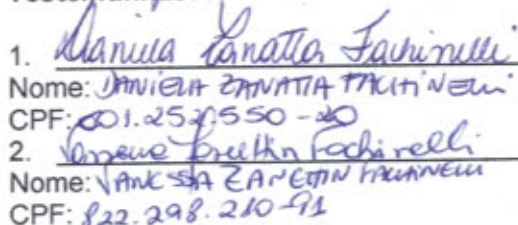 1. Daniela Zanatta Fachinelli
Nome: DANIELA ZANATTA FACHINELLI
CPF: 001.252.550-20
2. Vanessa Fachinelli
Nome: VANESSA ZANETTIN FACHINELLI
CPF: 822.298.210-91